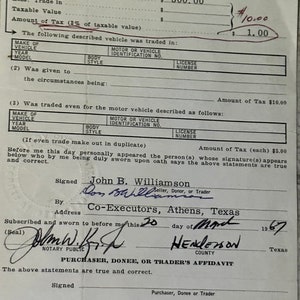 Less Trade in $ 500.00
Taxable Value $
Amount of Tax (2% of taxable value) $ 1.00
$10.00
The following described vehicle was traded in:
MAKE OF VEHICLE MOTOR OR VEHICLE IDENTIFICATION NO.
YEAR MODEL BODY STYLE LICENSE NUMBER
(2) Was given to
the circumstances being:
Amount of Tax $10.00
(3) Was traded even for the motor vehicle described as follows:
MAKE OF VEHICLE MOTOR OR VEHICLE IDENTIFICATION NO.
YEAR MODEL BODY STYLE LICENSE NUMBER
(If even trade make out in duplicate) Amount of Tax (each) $5.00
Before me this day personally appeared the person(s) whose signature(s) appears
below who by me being duly sworn upon oath says the above statements are true
and correct.
John B. Williamson
Signed
Seller, Donor, or Trader
By
Address Co-Executors, Athens, Texas
Subscribed and sworn to before me this 20 day of March 1967
(Seal) Henderson Texas
NOTARY PUBLIC COUNTY
PURCHASER, DONEE, OR TRADER'S AFFIDAVIT
The above statements are true and correct.
Signed
Purchaser, Donee or Trader